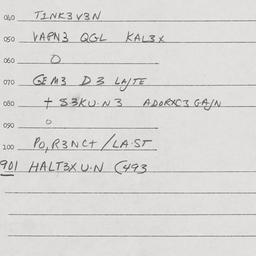 040 TINK3V3N
050 VAPN3 QGL KAL3X
060 O
070 GEM3 D3 LA/TE
080 + S3KU·N3 ADORXC3 GA/N
090 O
100 PO,R3NC+/LA·ST
901 HALT3XU·N (493